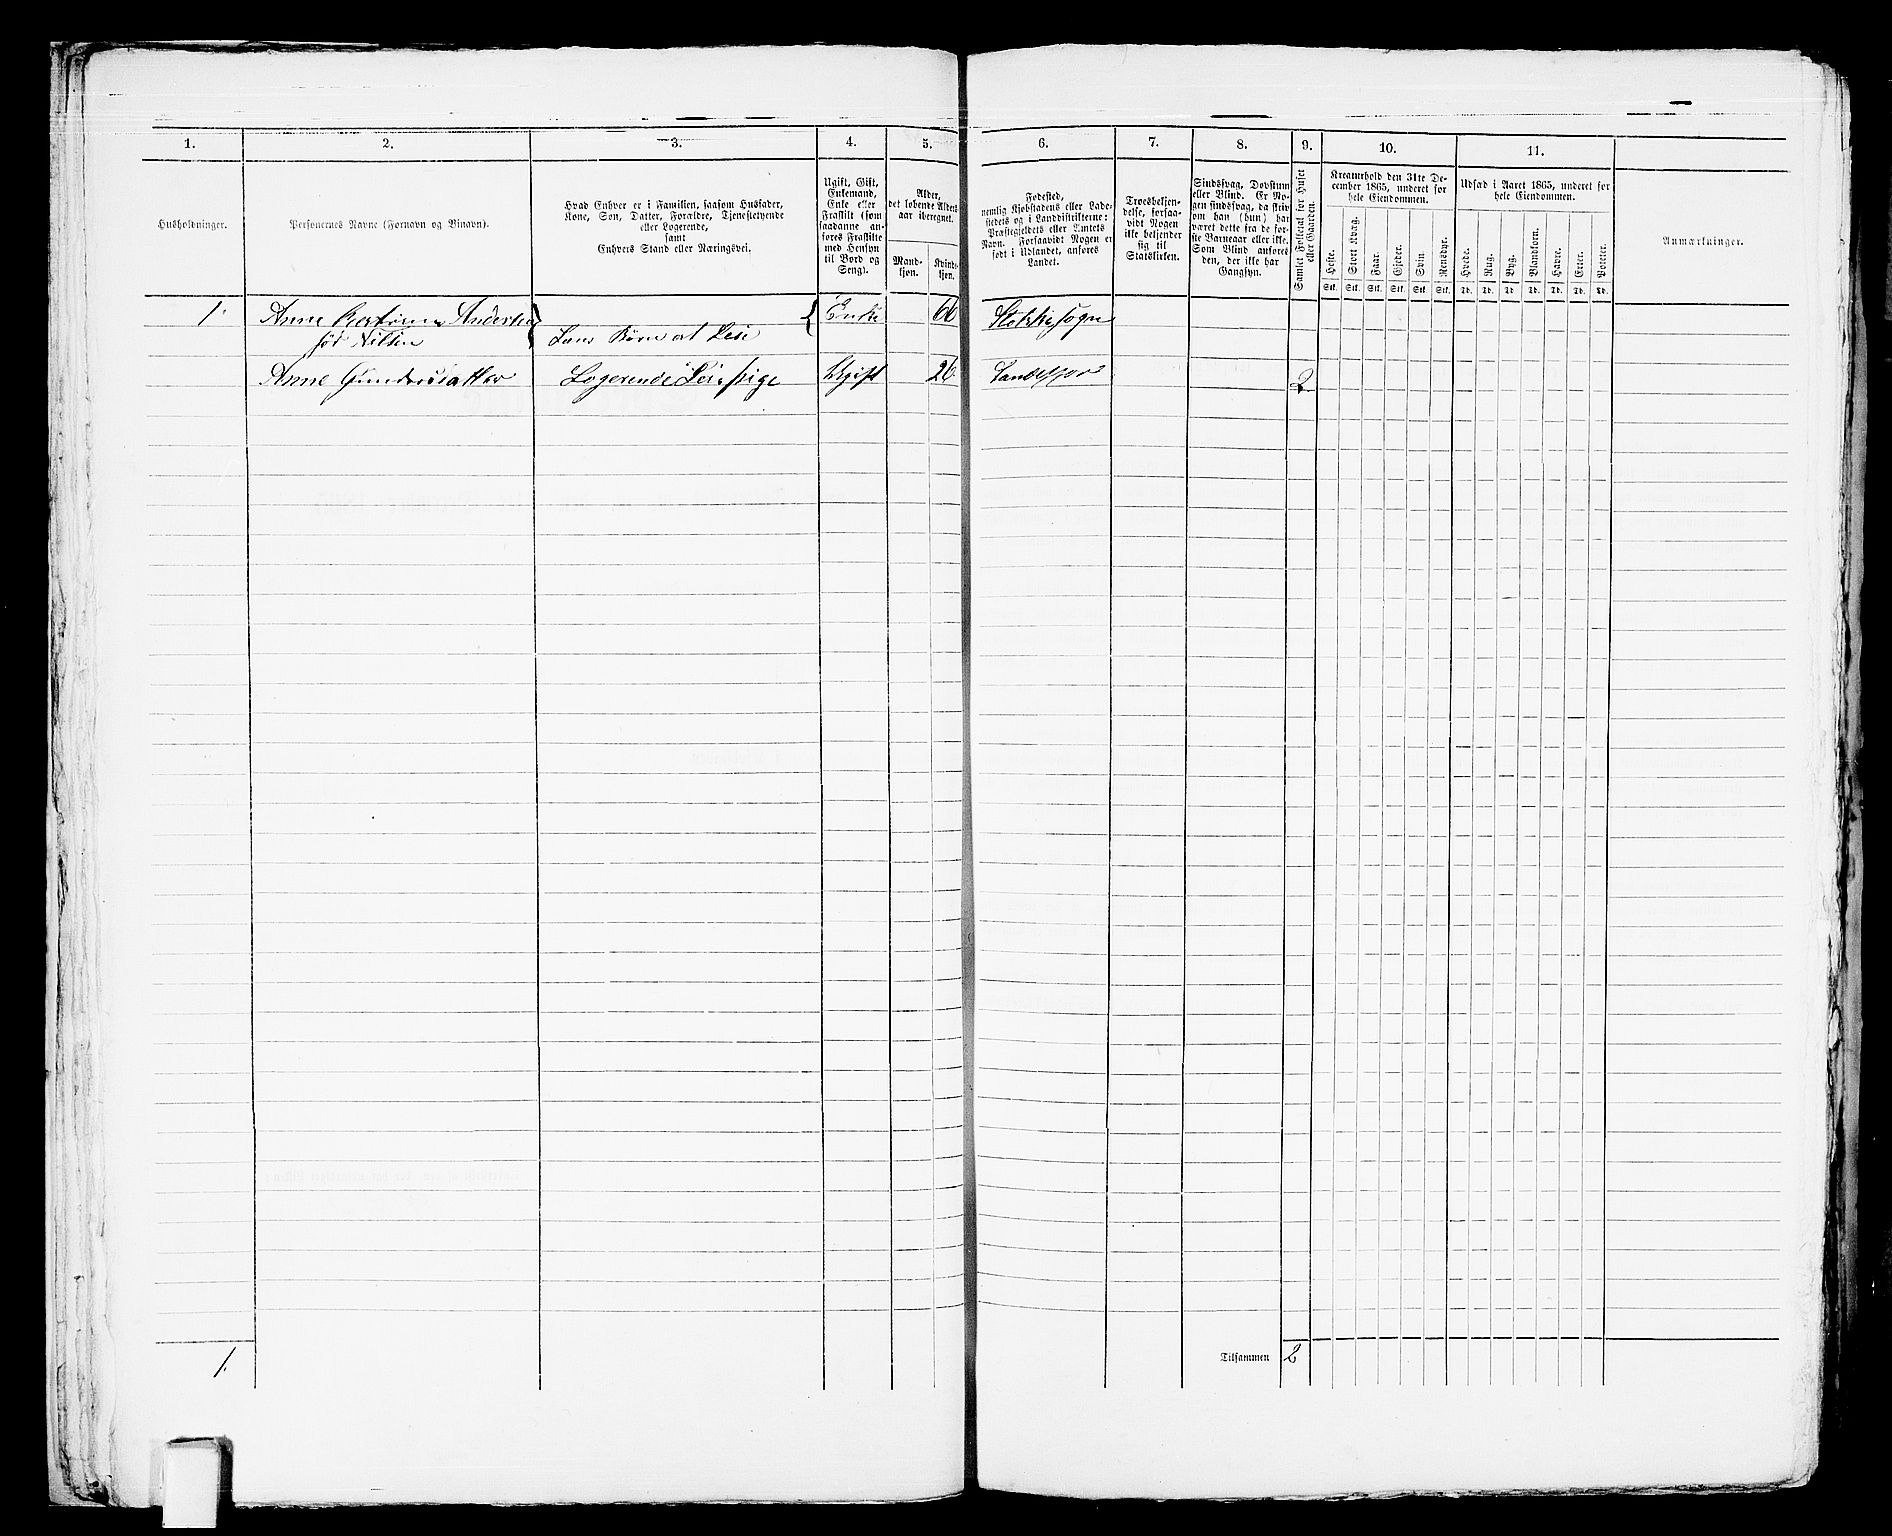 1. 2. 3. 4. 5. 6. 7. 8. 9. 10. 11.
Husholdninger.
Personernes Navne (Fornavn og Binavn).
Hvad Enhver er i Familien, saasom Husfader,
Kone, Søn, Datter, Forældre, Tjenestetyende
eller Logerende,
samt
Enhvers Stand eller Næringsvei.
Ugift, Gift,
Enkemand,
Enke eller
Fraskilt (som
saadanne an-
føres Fraskilte
med Hensyn
til Bord og
Seng).
Alder,
det løbende Alders-
aar iberegnet.
Mand-
kjøn.
Kvinde-
kjøn.
Fødested,
nemlig Kjøbstadens eller Lade-
stedets og i Landdistrikterne:
Præstegjeldets eller Amtets
Navn. Forsaavidt Nogen er
født i Udlandet, anføres
Landet.
Troesbekjen-
delse, forsaa-
vidt Nogen
ikke bekjender
sig til
Statskirken.
Sindssvag, Døvstum
eller Blind. Er No-
gen sindssvag, da skriv
om han (hun) har
været dette fra de før-
ste Barneaar eller ikke.
Som Blind anføres
den, der ikke har
Gangsyn.
Samlet Folketal for Huset
eller Gaarden.
Kreaturhold den 31te De-
cember 1865, underet for
hele Eiendommen.
Heste. Stort Kvæg. Faar. Gjeder. Svin. Rensdyr.
Stk. Stk. Stk. Stk. Stk. Stk.
Udsæd i Aaret 1865, underet for
hele Eiendommen.
Hvede. Rug. Byg. Blandkorn. Havre. Erter. Poteter.
Td. Td. Td. Td. Td. Td. Td.
Anmærkninger.
1. Anne Andersen Enke 66 Stokke sogn
fød Nilsen Børn at
Anne Gundersdatter Logerende pige Ugift 26 2
1. Tilsammen 2